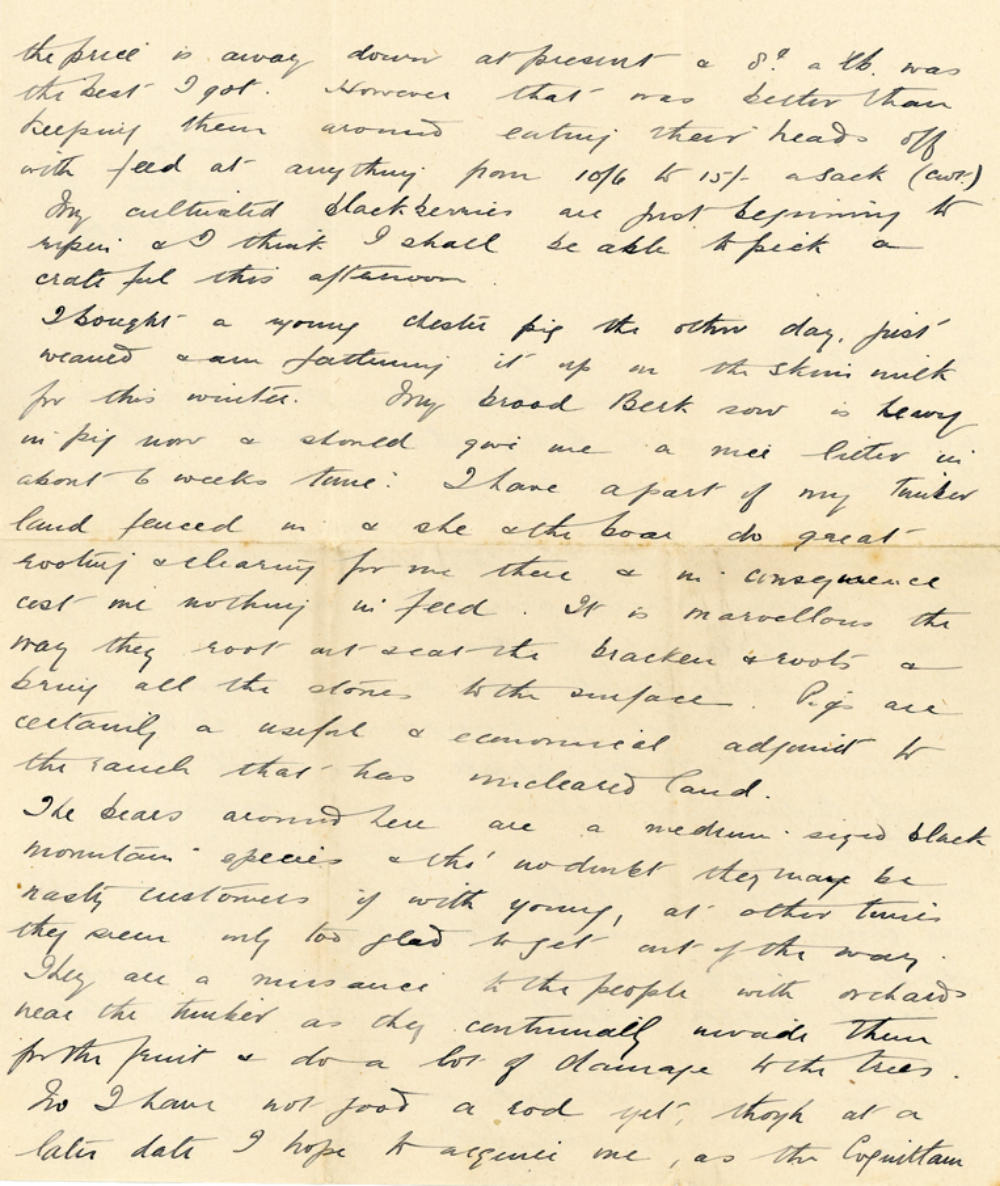 the price is away down at present & 8d a lb. was
the best I got. However that was better than
keeping them around eating their heads off
with feed at anything from 10/6 to 15/- a sack (cwt.)
My cultivated blackberries are just beginning to
ripen & I think I shall be able to pick a
crate ful this afternoon.
I bought a young chester pig the other day, just
weaned & am fattening it up on the skim milk
for this winter. My brood Berk sow is heavy
in pig now & should give me a nice litter in
about 6 weeks time. I have a part of my timber
land fenced in & she & the boar do great
rooting & clearing for me there & in consequence
cost me nothing in feed. It is marvellous the
way they root out & eat the bracken & roots &
bring all the stones to the surface. Pigs are
certainly a useful & economical adjunct to
the ranch that has uncleared land.
The bears around here are a medium sized black
mountain species & tho' no doubt they may be
nasty customers if with young, at other times
they seem only too glad to get out of the way.
They are a nuisance to the people with orchards
near the timber as they continually invade them
for the fruit & do a lot of damage to the trees.
No I have not good a rod yet, though at a
later date I hope to acquire one, as the